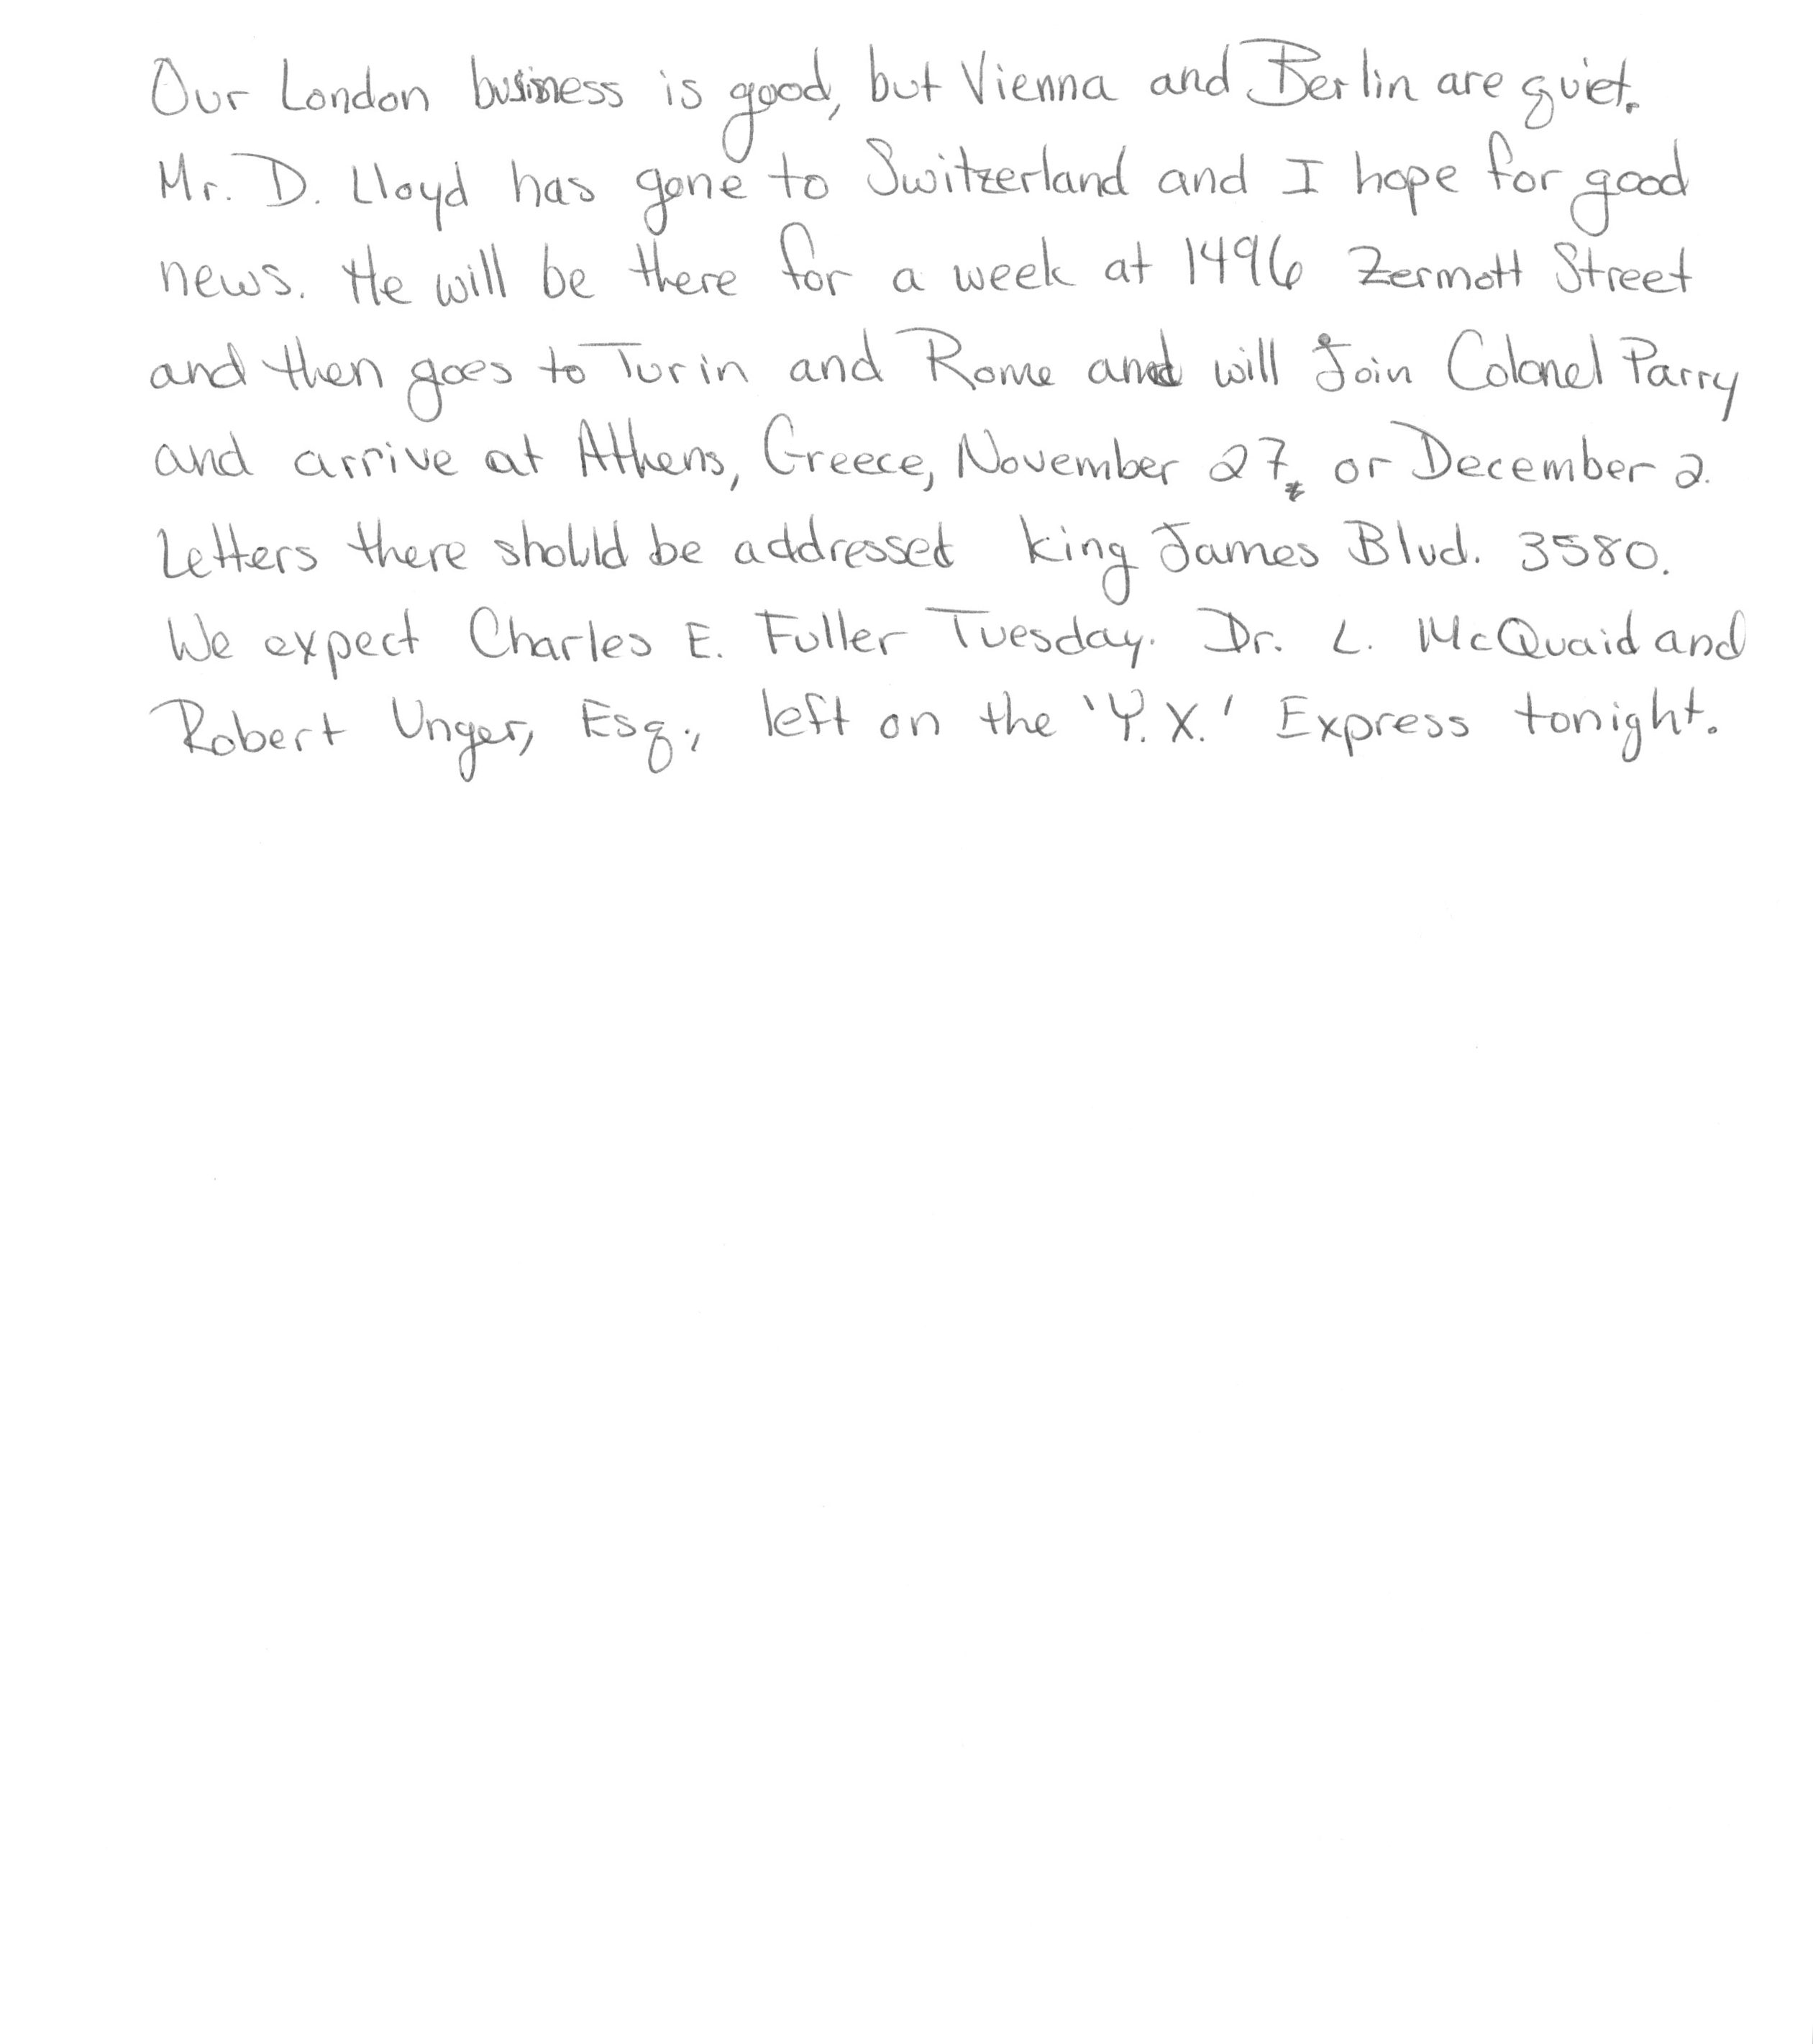 Our London business is good, but Vienna and Berlin are quiet.
Mr. D. Lloyd has gone to Switzerland and I hope for good
news. He will be there for a week at 1496 Zermott Street
and then goes to Turin and Rome and will Join Colonel Parry
and arrive at Athens, Greece, November 27, or December 2.
Letters there should be addressed King James Blvd. 3580.
We expect Charles E. Fuller Tuesday. Dr. L. McQuaid and
Robert Unger, Esq., left on the 'Y.X.' Express tonight.